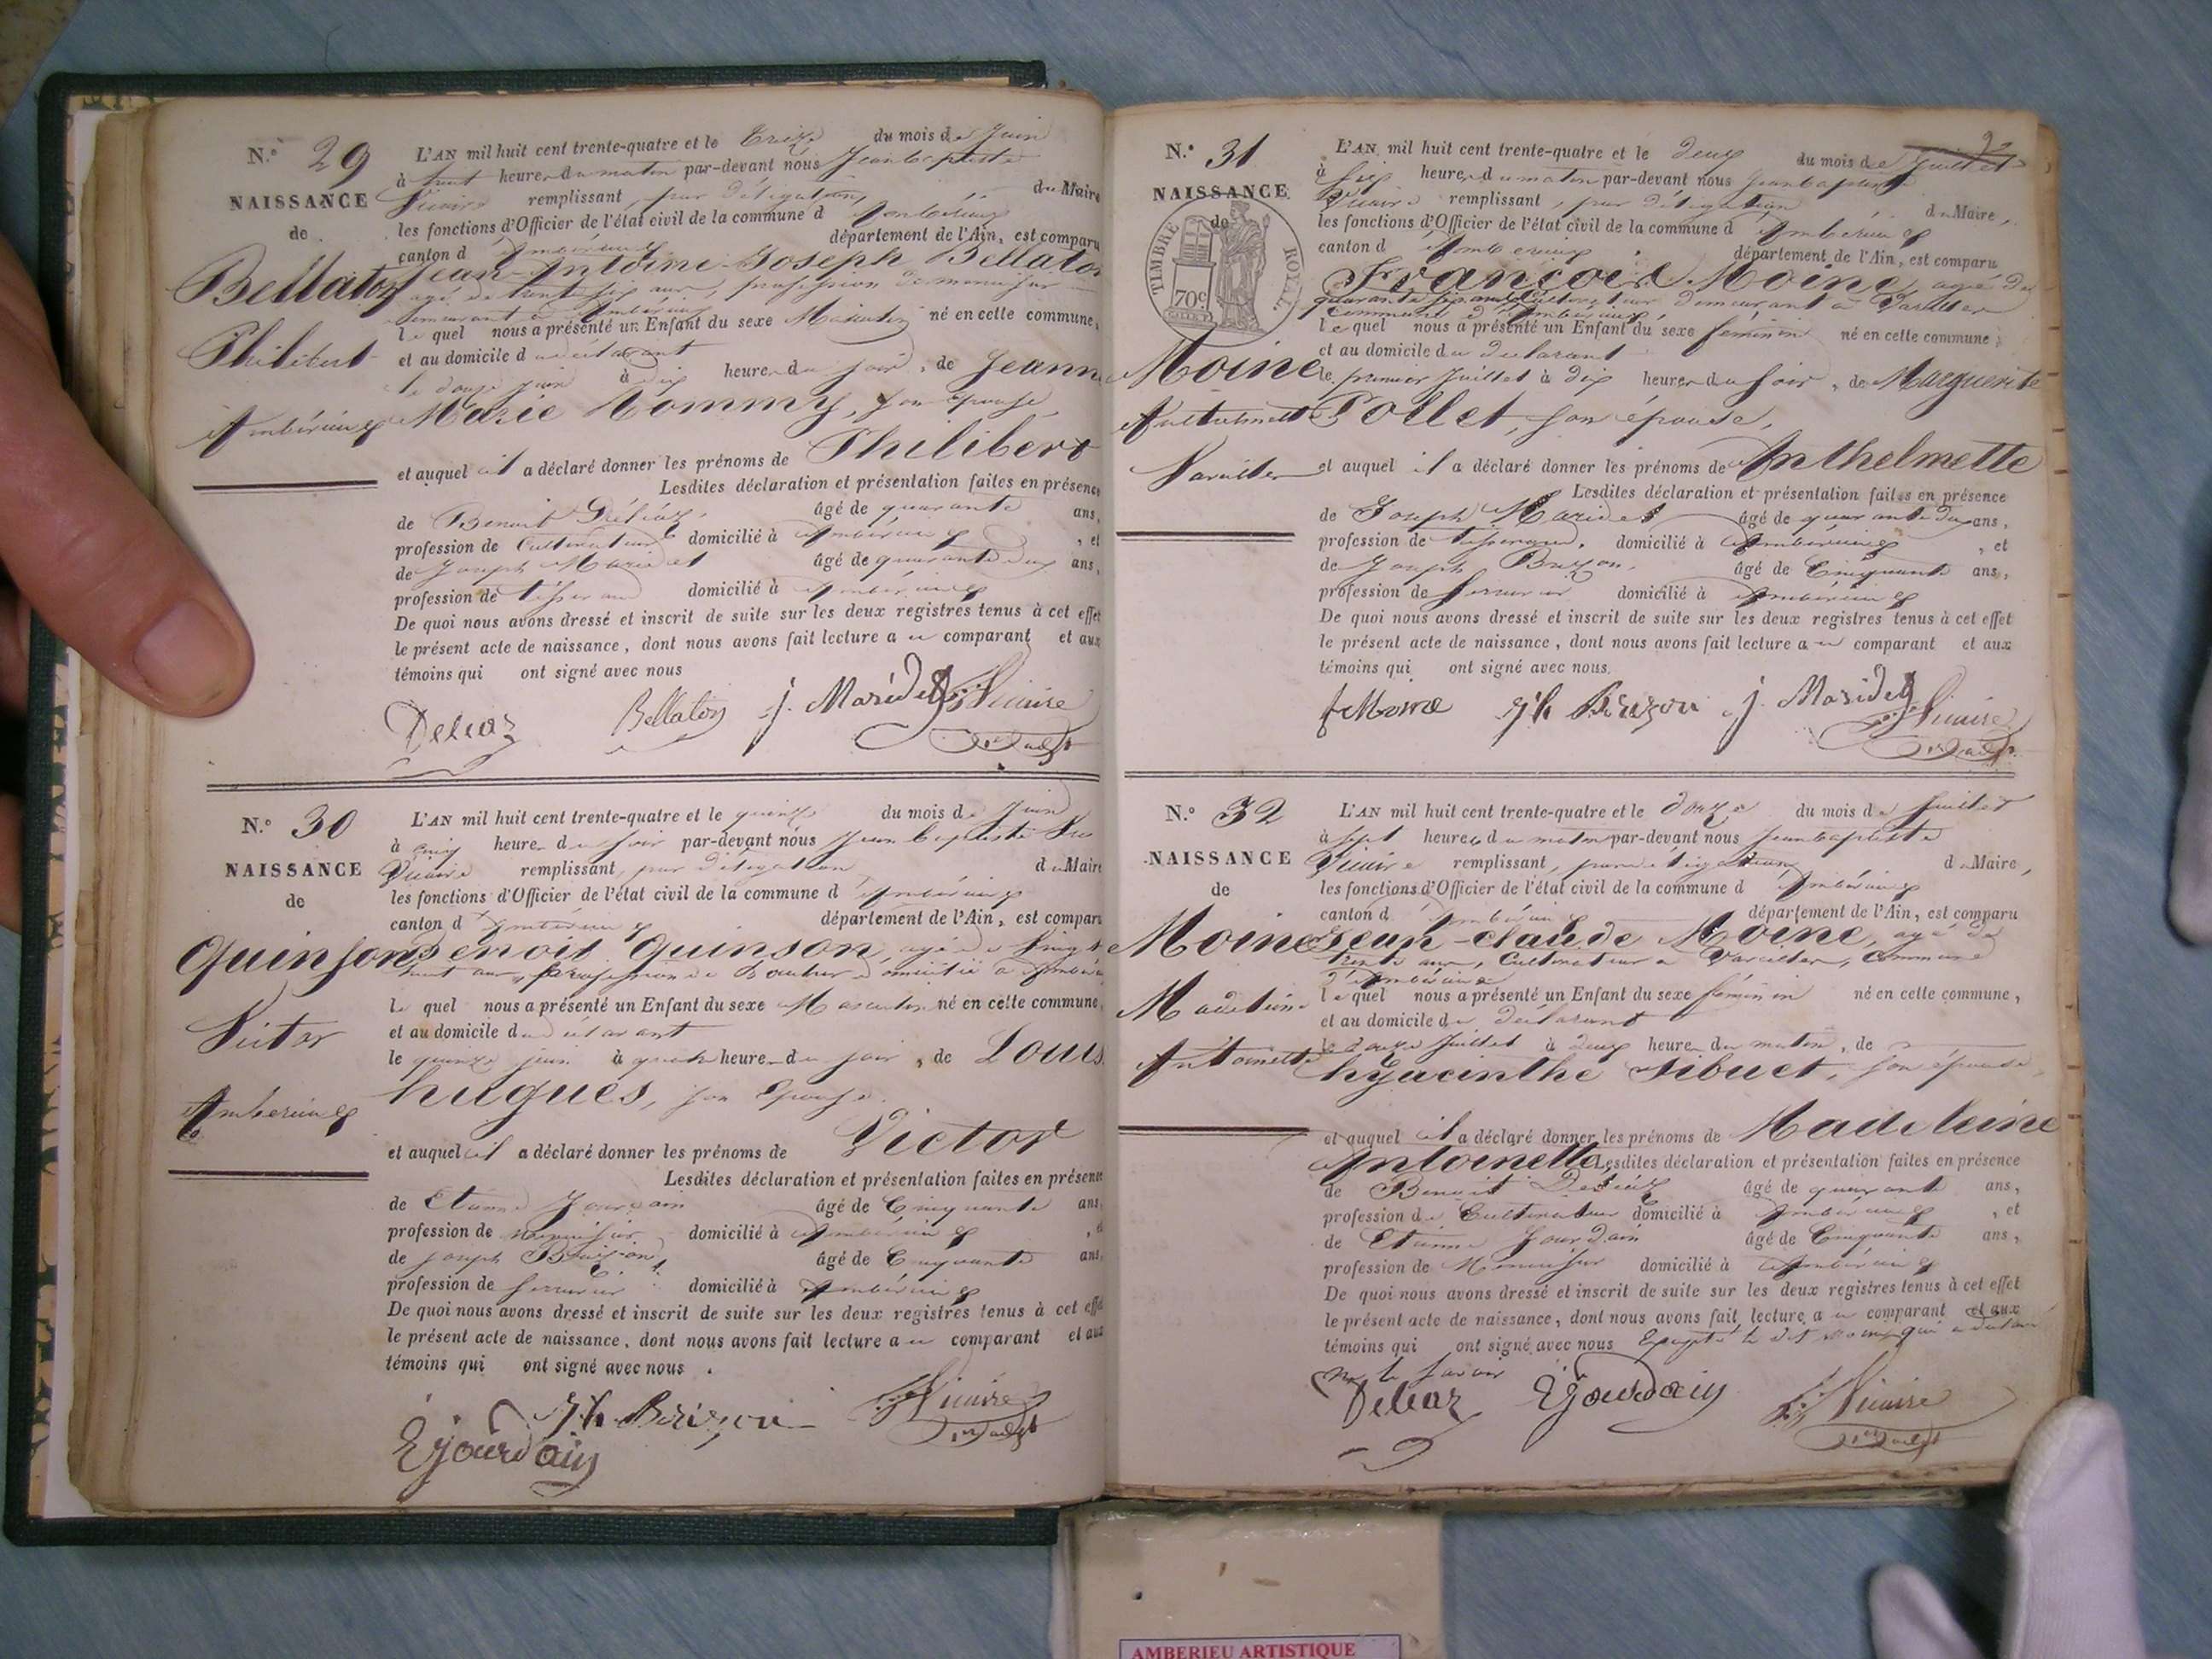 N.o 29
NAISSANCE
de
Bellaton
Philibert
Ambérieux
L'AN mil huit cent trente-quatre et le treize du mois de Juin
à huit heures du matin par-devant nous Jean baptiste
Vicaire remplissant, par délégation, du Maire
les fonctions d'Officier de l'état civil de la commune d'Ambérieux
canton d'Ambérieux département de l'Ain, est comparu
Jean-Antoine-Joseph Bellaton
agé de trente six ans, profession de menuisier
demeurant à Ambérieux
lequel nous a présenté un Enfant du sexe Masculin né en cette commune,
et au domicile du déclarant
le douze juin à dix heures du soir, de Jeanne
Marie Tommy, son épouse,
et auquel il a déclaré donner les prénoms de Philibert
Lesdites déclaration et présentation faites en présence
de Benoit Déléaz, âgé de quarante ans,
profession de Cultivateur domicilié à Ambérieux, et
de Joseph Maridet âgé de quarante deux ans,
profession de tisserand domicilié à Ambérieux
De quoi nous avons dressé et inscrit de suite sur les deux registres tenus à cet effet
le présent acte de naissance, dont nous avons fait lecture au comparant et aux
témoins qui ont signé avec nous
Deleaz Bellaton j. Maridet Vicaire
N.o 30
NAISSANCE
de
Quinson
Victor
Ambérieux
L'AN mil huit cent trente-quatre et le quinze du mois de Juin
à cinq heures du soir par-devant nous Jean baptiste
Vicaire remplissant, par délégation du Maire
les fonctions d'Officier de l'état civil de la commune d'Ambérieux
canton d'Ambérieux département de l'Ain, est comparu
Benoit Quinson, agé de vingt
huit ans, profession de domicilié à Ambérieux
lequel nous a présenté un Enfant du sexe Masculin né en cette commune,
et au domicile du déclarant
le quinze juin à quatre heures du soir, de Louise
hugues, son Epouse.
et auquel il a déclaré donner les prénoms de Victor
Lesdites déclaration et présentation faites en présence
de Etienne Jourdain âgé de Cinquante ans,
profession de menuisier domicilié à Ambérieux, et
de Joseph Brizon, âgé de Cinquante ans,
profession de serrurier domicilié à Ambérieux
De quoi nous avons dressé et inscrit de suite sur les deux registres tenus à cet effet
le présent acte de naissance, dont nous avons fait lecture au comparant et aux
témoins qui ont signé avec nous.
Ejourdain jh Brizon Vicaire
N.o 31
NAISSANCE
de
TIMBRE ROYAL
70c
Moine
Anthelmette
Vareilles
L'AN mil huit cent trente-quatre et le deux du mois de Juillet
à six heures du matin par-devant nous Jean baptiste
Vicaire remplissant, par délégation du Maire,
les fonctions d'Officier de l'état civil de la commune d'Ambérieux
canton d'Ambérieux département de l'Ain, est comparu
François Moine, agé de
quarante six ans, Cultivateur demeurant à Vareilles
commune d'Ambérieux,
lequel nous a présenté un Enfant du sexe féminin né en cette commune,
et au domicile du déclarant
le premier Juillet à dix heures du soir, de Marguerite
Pollet, son épouse,
et auquel il a déclaré donner les prénoms de Anthelmette
Lesdites déclaration et présentation faites en présence
de Joseph Maridet âgé de quarante deux ans,
profession de tisserand, domicilié à Ambérieux, et
de Joseph Brizon, âgé de Cinquante ans,
profession de serrurier domicilié à Ambérieux
De quoi nous avons dressé et inscrit de suite sur les deux registres tenus à cet effet
le présent acte de naissance, dont nous avons fait lecture au comparant et aux
témoins qui ont signé avec nous.
f Moine jh Brizon j. Maridet Vicaire
N.o 32
NAISSANCE
de
Moine
Madeleine
Antoinette
L'AN mil huit cent trente-quatre et le douze du mois de Juillet
à sept heures du matin par-devant nous Jean baptiste
Vicaire remplissant, par délégation, du Maire,
les fonctions d'Officier de l'état civil de la commune d'Ambérieux
canton d'Ambérieux département de l'Ain, est comparu
Jean-claude Moine, agé de
trente ans, Cultivateur à Vareilles, Commune
d'Ambérieux
lequel nous a présenté un Enfant du sexe féminin né en cette commune,
et au domicile du déclarant
le douze Juillet à deux heures du matin, de
hyacinthe Sibuet, son épouse,
et auquel il a déclaré donner les prénoms de Madeleine
Antoinette, Lesdites déclaration et présentation faites en présence
de Benoit Deléaz âgé de quarante ans,
profession de Cultivateur domicilié à Ambérieux, et
de Etienne Jourdain âgé de Cinquante ans,
profession de Menuisier domicilié à Ambérieux
De quoi nous avons dressé et inscrit de suite sur les deux registres tenus à cet effet
le présent acte de naissance, dont nous avons fait lecture au comparant et aux
témoins qui ont signé avec nous Excepté le dit moine qui a déclaré
ne le savoir
Deleaz Ejourdain Vicaire
AMBERIEU ARTISTIQUE